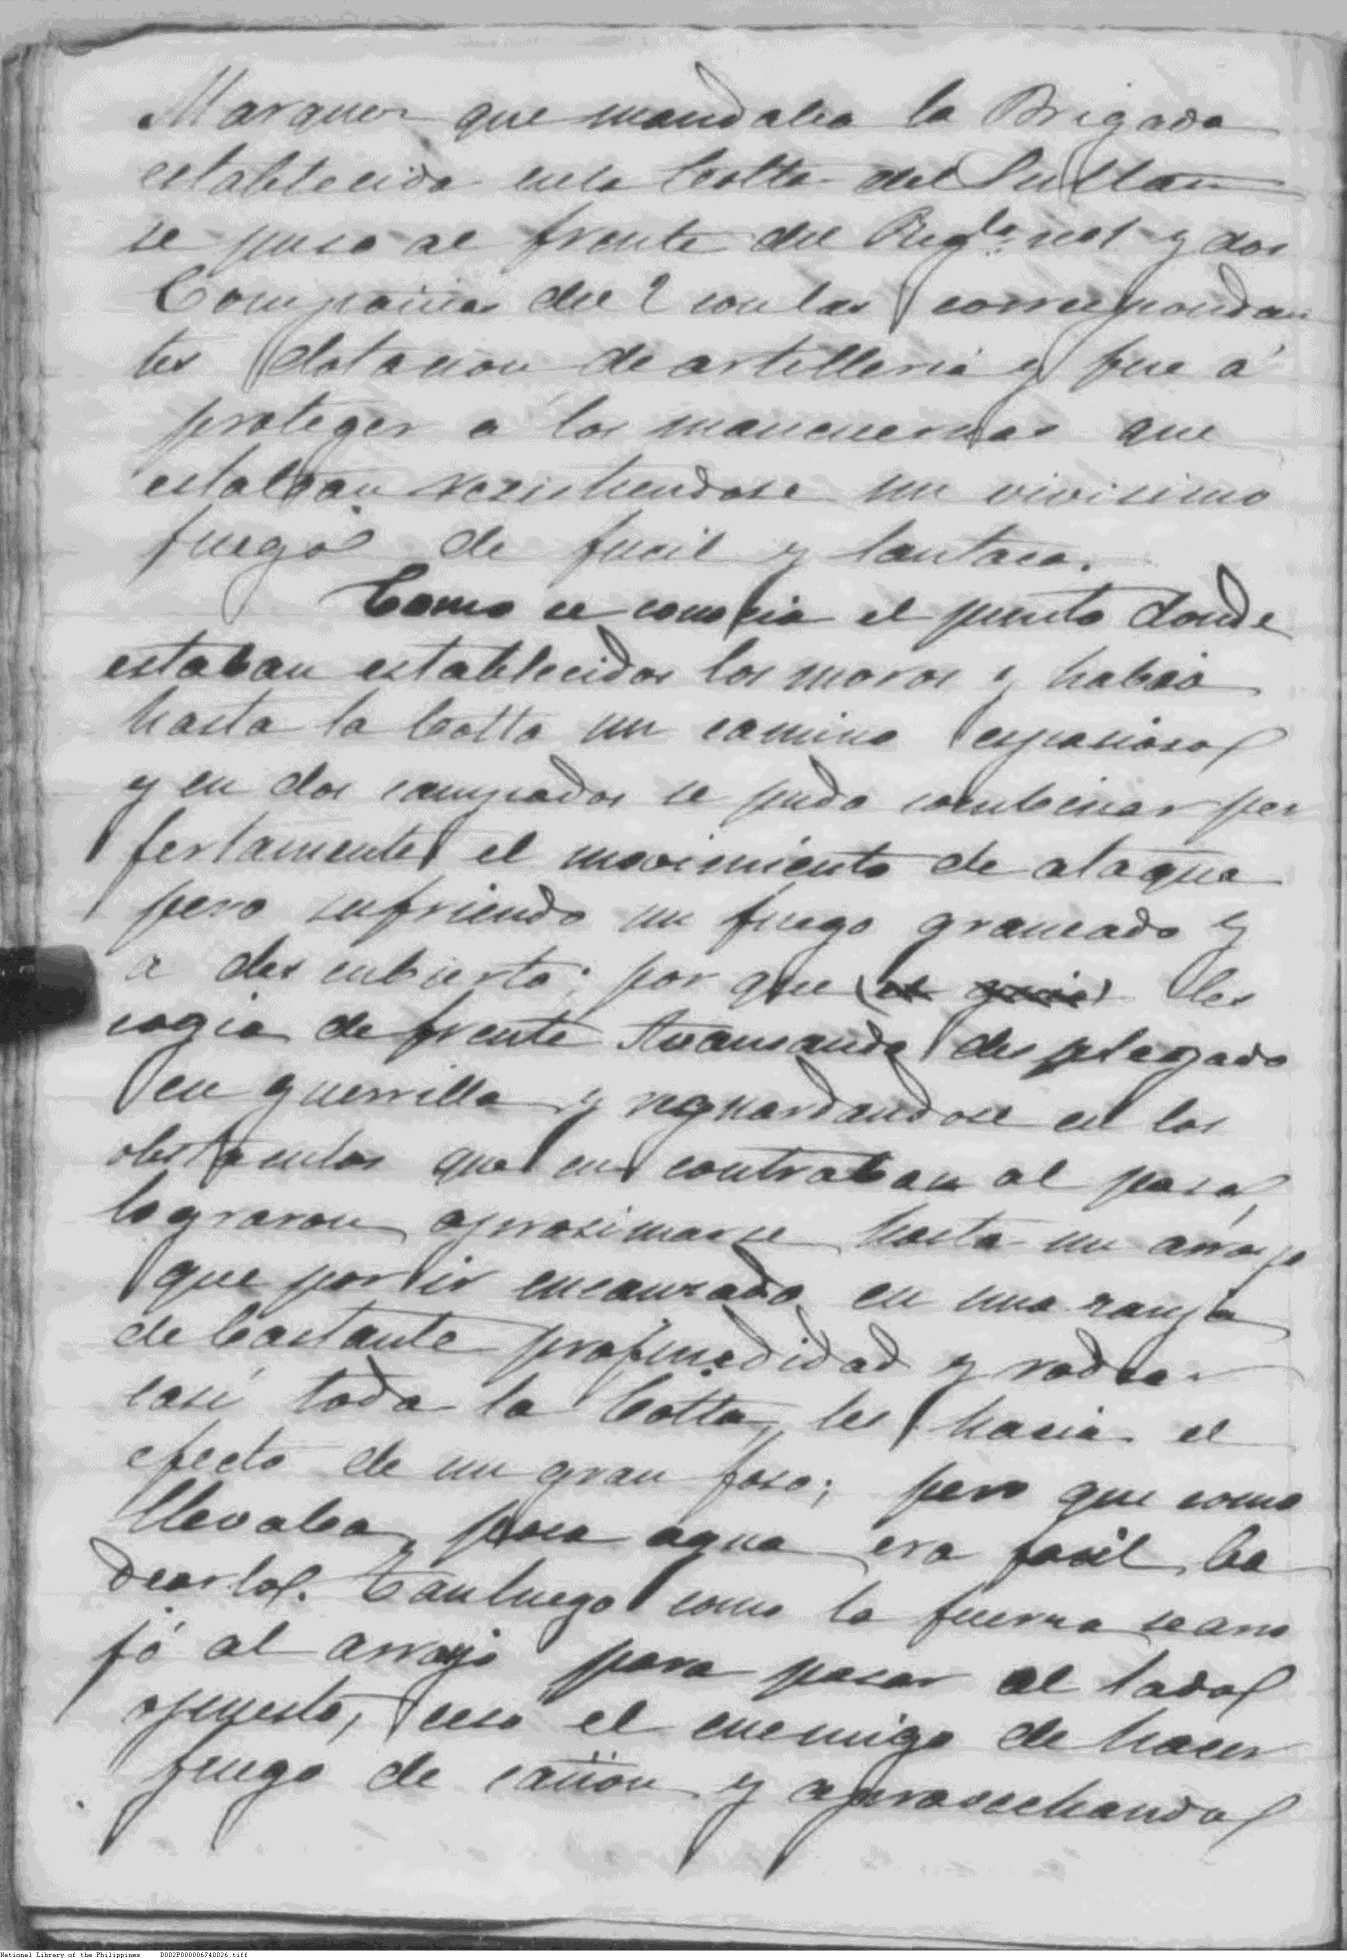 Marquez que mandaba la Brigada
establecida en la Cotta del Sultan
se puso al frente del Regto. no 1 y dos
Compañias del 2 con las correspondien
tes dotacion de artilleria y fue á
proteger a los mancuernas que
estaban resistiendose un vivisimo
fuego de fucil y lantaca.
Como se conocia el punto donde
estaban establecidos los moros y habia
hasta la Cotta un camino espacioso
y en dos campados se pudo combinar per
fectamente el movimiento de ataque
pero sufriendo un fuego graneado y
a descubierto; por que les
cogia de frente Avansando desplegado
en guerrilla y reguardandose en los
obstaculos que encontraban al paso,
lograron aprosimarse hasta un arroyo
que por ir encauzado en una zanja
de bastante profundidad y rodear
casi toda la Cotta, les hacia el
efecto de un gran foso; pero que como
llevaba poca agua era facil ba
dearlo. Tan luego como la fuerza se arro
jó al arroyo para pasar al lado
opuesto, ceso el enemigo de hacer
fuego de cañon y aprovechando
National Library of the Philippines D002P000006740026.tiff